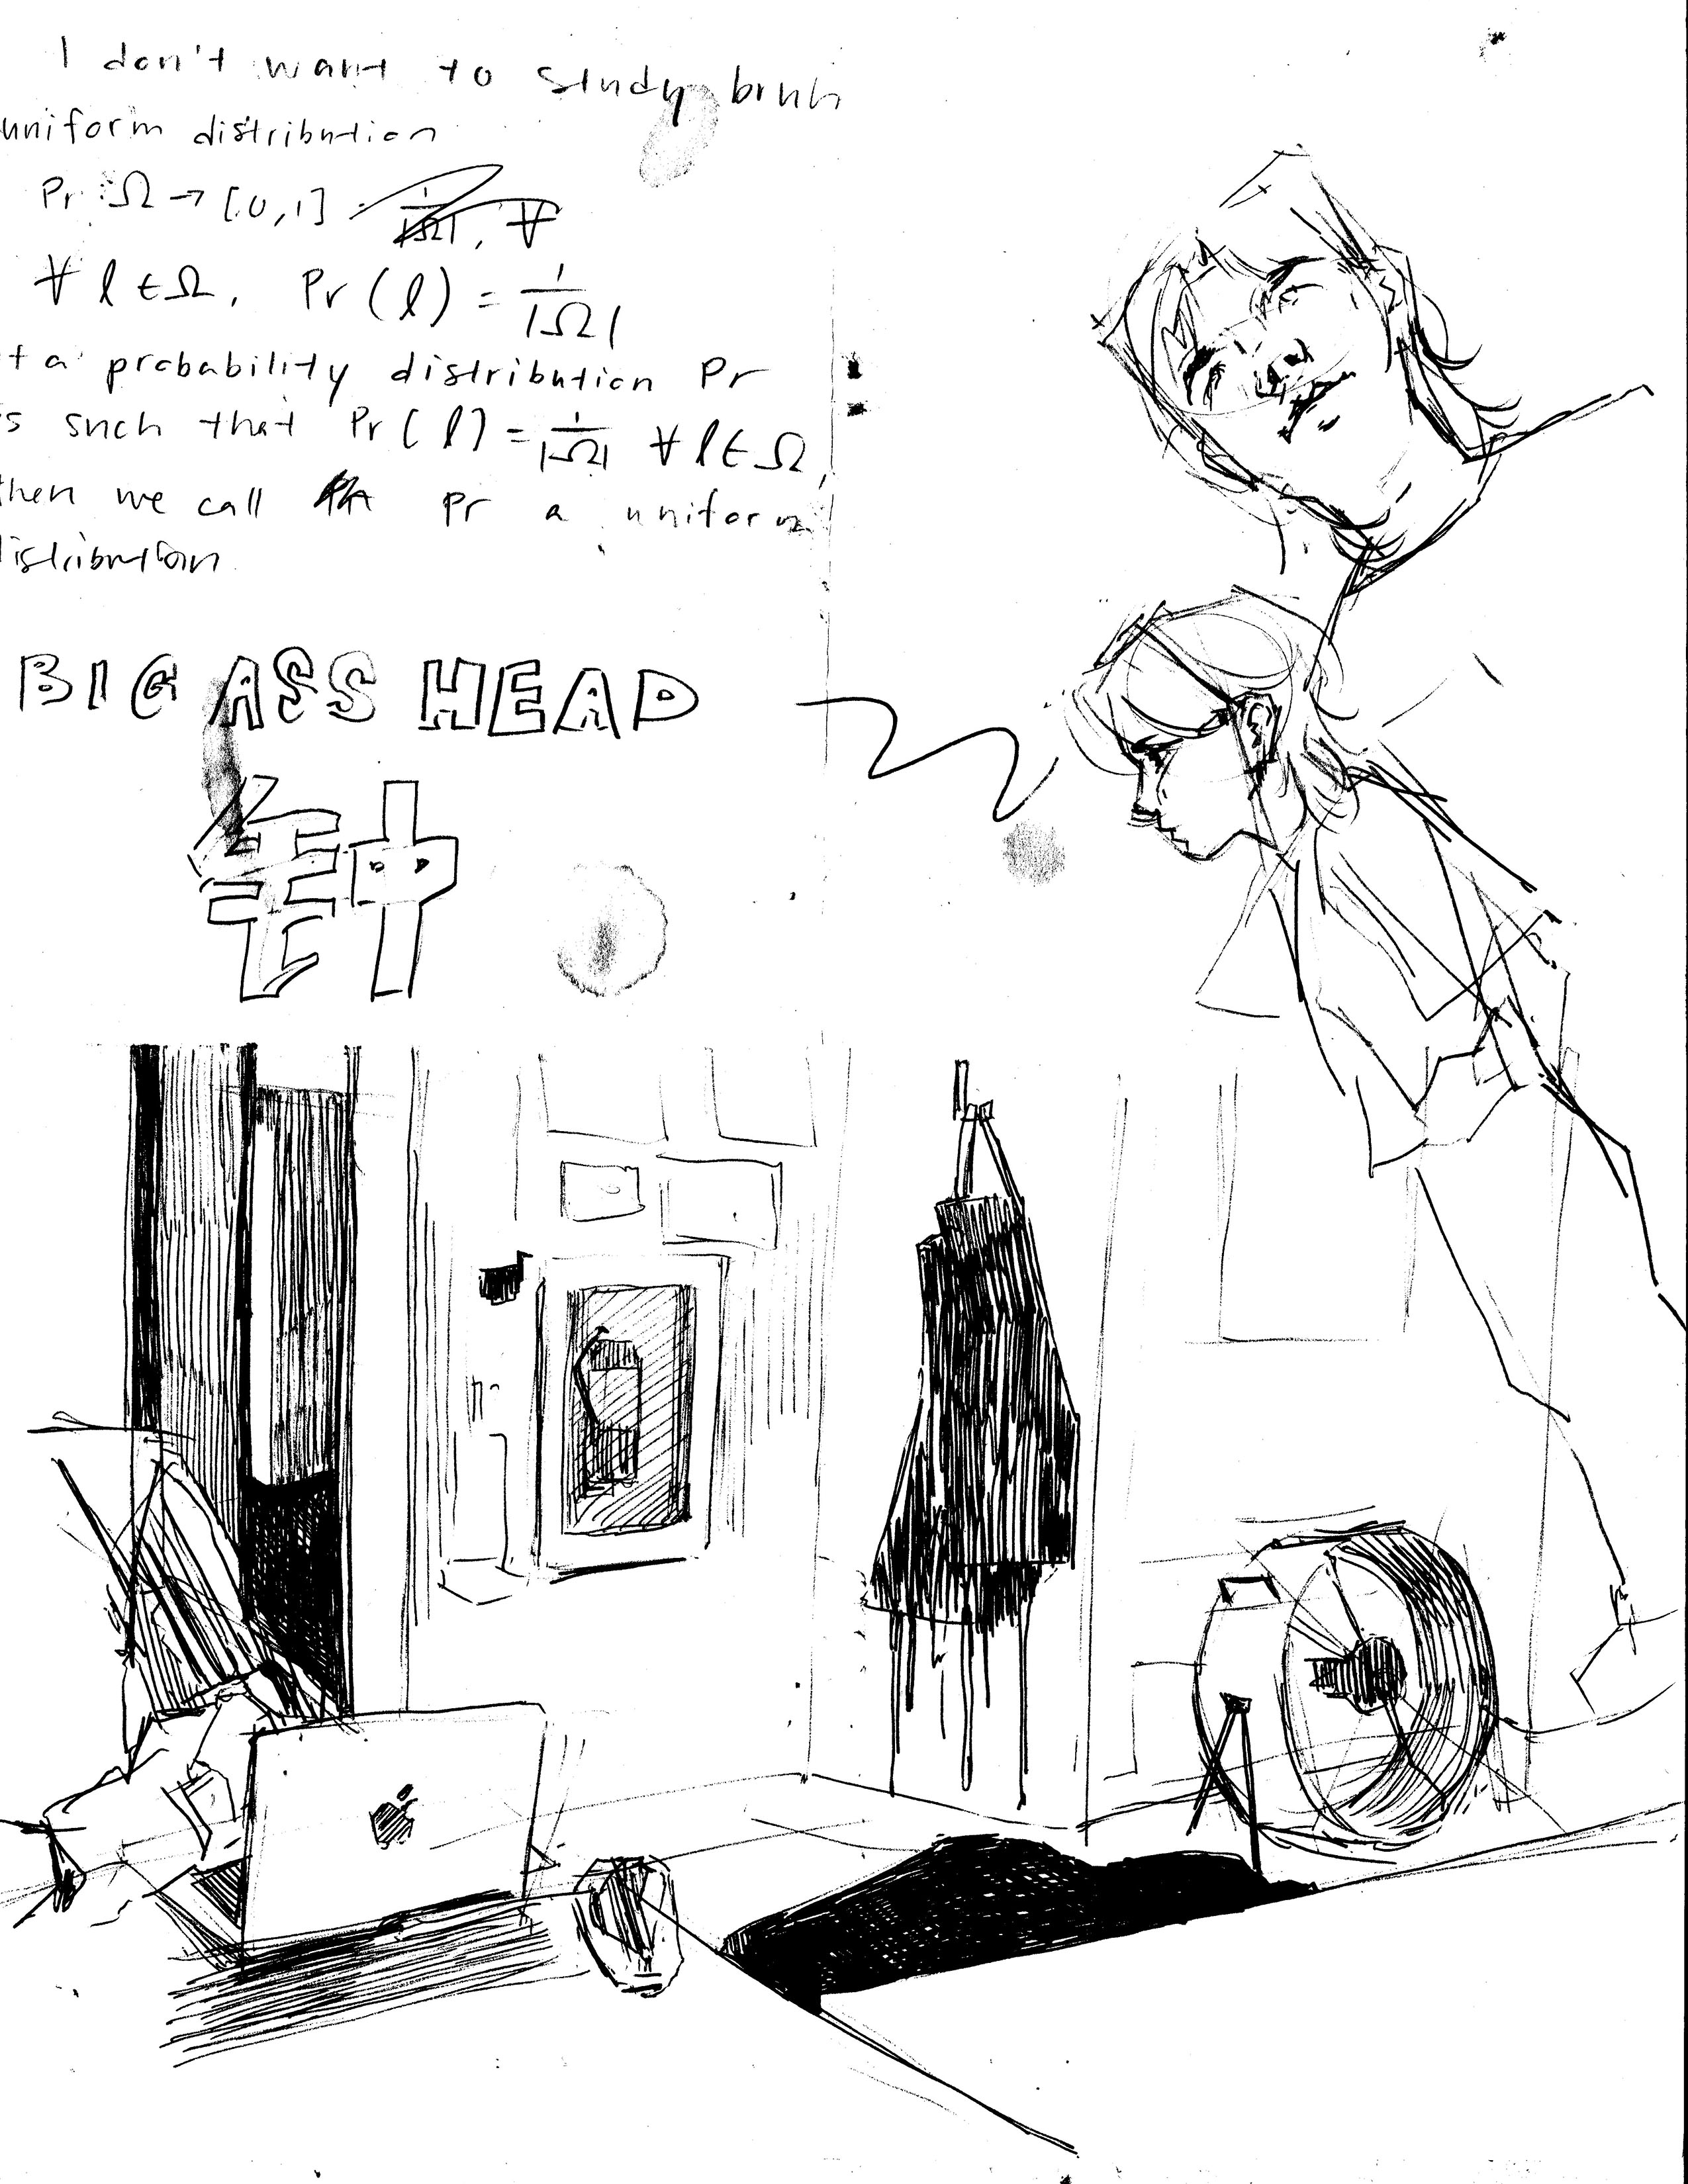 I don't want to study bruh
uniform distribution
Pr : Ω → [0,1]
∀ l ∈ Ω, Pr(l) = 1/|Ω|
t a probability distribution Pr
s such that Pr(l) = 1/|Ω| ∀ l ∈ Ω,
then we call Pr a uniform
distribution
BIG ASS HEAD
钟